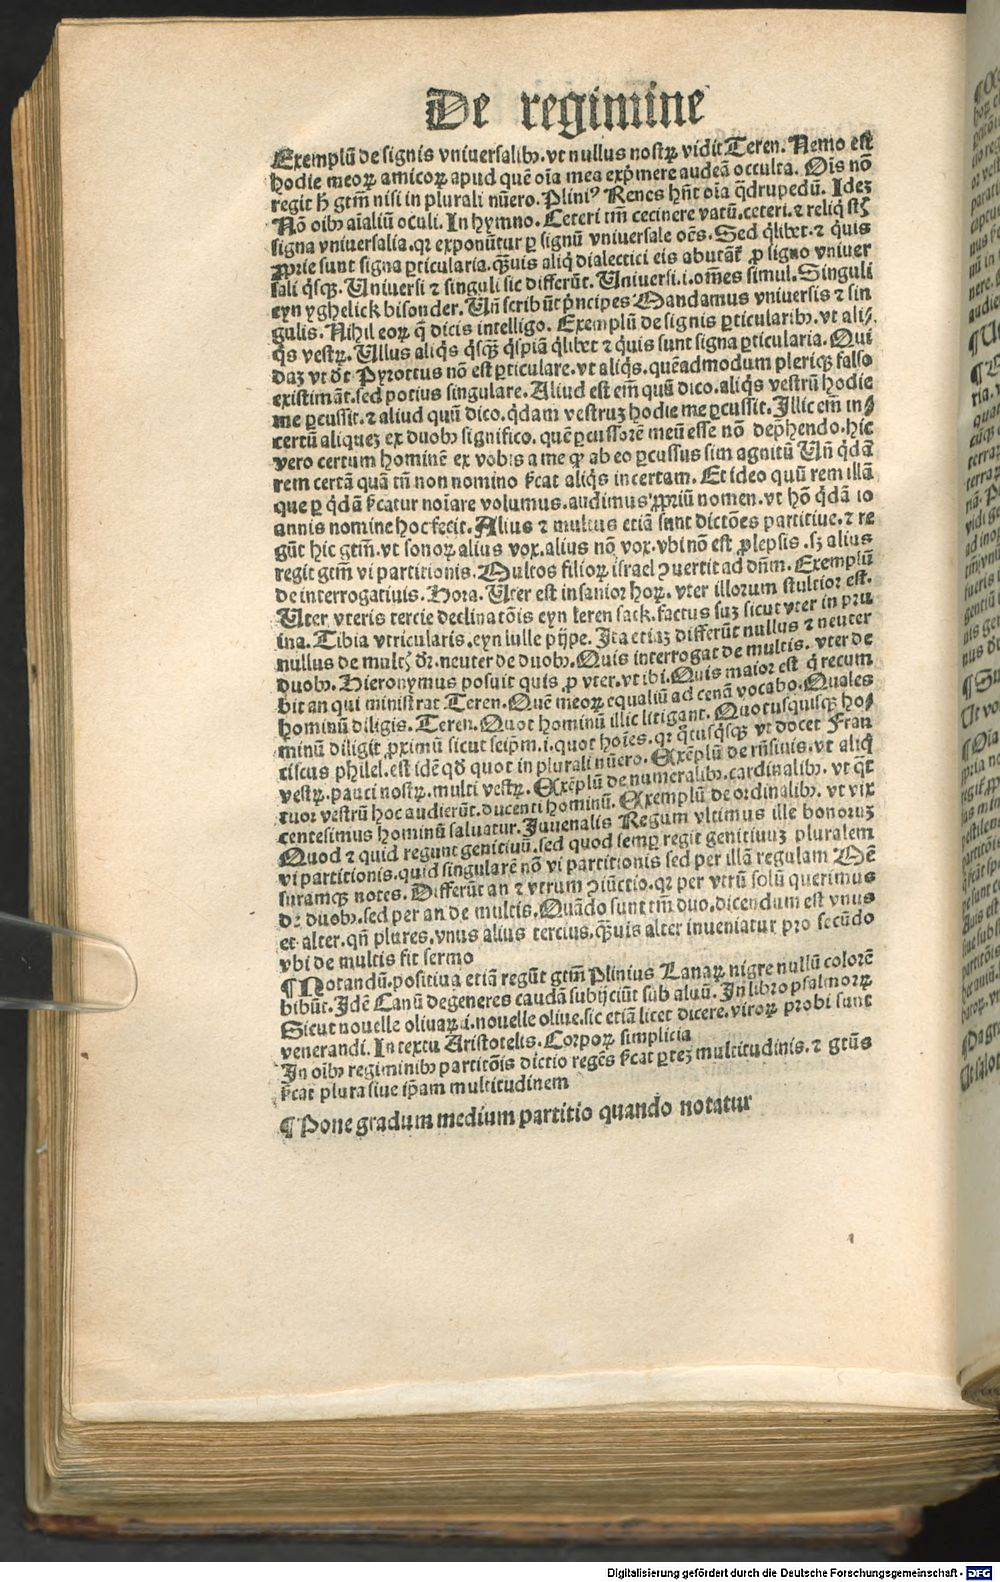 De regimine
Exemplū de signis vniuersalibꝫ.vt nullus nostrꝝ vidit Teren. Nemo est
hodie meoꝝ amicoꝝ apud quē oīa mea exp̄mere audeā occulta. Oīs nō
regit h̄ gtīm nisi in plurali nūero. Pliniꝰ Renes hn̄t oīa q̄drupedū. Idez
Nō oibꝫ aīaliū oculi. In hymno. Ceteri tm̄ cecinere vatū.ceteri.⁊ reliq̄
signa vniuersalia.qꝛ exponūtur ꝑ signū vniuersale oēs. Sed q̄libet.⁊ q̄uis
ꝓprie sunt signa ꝑticularia.q̄uis aliq̄ dialectici eis abutāt̄ ꝓ signo vniuer
sali q̄sqꝫ. Uniuersi ⁊ singuli sic differūt. Uniuersi.i.omēs simul. Singuli
eyn yghelick bisonder. Un̄ scribūt p̄ncipes Mandamus vniuersis ⁊ sin
gulis. Nihil eoꝝ q̄ dicis intelligo. Exemplū de signis ꝑticularibꝫ. vt ali⸗
q̄s vestrꝝ. Ullus aliq̄s q̄sq̄ꝫ q̄spiā q̄libet ⁊ q̄uis sunt signa ꝑticularia. Qui
daz vt dt̄ Pyrottus nō est ꝑticulare.vt aliq̄s.quēadmodum pleriqꝫ falso
existimāt.sed potius singulare. Aliud est em̄ quū dico.aliq̄s vestrū hodie
me ꝑcussit.⁊ aliud quū dico.q̄dam vestruz hodie me ꝑcussit. Illic em̄ in⸗
certū aliquez ex duobꝫ significo.quē ꝑcussorē meū esse nō dep̄hendo.hic
vero certum hominē ex vobis a me qꝛ ab eo ꝑcussus sim agnitū Un̄ q̄dā
rem certā quā tn̄ non nomino s̄cat aliq̄s incertam. Et ideo quū rem illā
que ꝑ q̄dā s̄catur noīare volumus.audimus ꝓpriū nomen.vt hō q̄dā io
annis nomine hoc fecit. Alius ⁊ multus etiā sunt dictōes partitiue.⁊ re
gūt hic gtīm.vt sonoꝝ alius vox.alius nō vox.vbi nō est ꝓlepsis.sꝫ alius
regit gtīm vi partitionis. Multos filioꝝ israel ꝯuertit ad dn̄m. Exemplū
de interrogatiuis. Hora. Uter est insanior hoꝝ. vter illorum stultior est.
Uter vteris tercie declinatōis eyn leren sack.factus suz sicut vter in pru
ina. Tibia vtricularis.eyn lulle pijpe. Ita etiaz differūt nullus ⁊ neuter
nullus de multꝭ dr̄. neuter de duobꝫ. Quis interrogat de multis. vter de
duobꝫ. Hieronymus posuit quis ꝓ vter.vt ibi. Quis maior est q̄ recum
bit an qui ministrat Teren. Quē meoꝝ equaliū ad cenā vocabo. Quales
hominū diligis. Teren. Quot hominū illic litigant. Quotusquisqꝫ ho⸗
minū diligit ꝓximū sicut seip̄m.i.quot hoīes.qꝛ q̄tusq̄sqꝫ vt docet Fran
ciscus philel.est idē qd̄ quot in plurali nūero. Exēplū de rn̄siuis.vt aliq̄
vestrꝝ. pauci nostrꝝ.multi vestrꝝ. Exēplū de numeralibꝫ.cardinalibꝫ. vt q̄t
tuor vestrū hoc audierūt.ducenti hominū. Exemplū de ordinalibꝫ. vt vix
centesimus hominū saluatur. Juuenalis Regum vltimus ille bonoruz
Quod ⁊ quid regunt genitiuū.sed quod semꝑ regit genitiuuz pluralem
vi partitionis.quid singularē nō vi partitionis sed per illā regulam Mē
suramqꝫ notes. Differūt an ⁊ vtrum ꝯiūctio.qꝛ per vtrū solū querimus
de duobꝫ.sed per an de multis. Quādo sunt tm̄ duo.dicendum est vnus
et alter.qn̄ plures.vnus alius tercius.q̄uis alter inueniatur pro secūdo
vbi de multis fit sermo
¶ Notandū.positiua etiā regūt gtīm Plinius Lanaꝝ nigre nullū colorē
bibūt. Idē Canū degeneres caudā subijciūt sub aluū. In libro psalmorꝝ
Sicut nouelle oliuaꝝ.i.nouelle oliue.sic etiā licet dicere.viroꝝ probi sunt
venerandi. In textu Aristotelis. Corpoꝝ simplicia
In oībꝫ regiminibꝫ partitōis dictio regēs s̄cat ꝑtez multitudinis.⁊ gtūs
s̄cat plura siue ip̄am multitudinem
¶ Pone gradum medium partitio quando notatur
Digitalisierung gefördert durch die Deutsche Forschungsgemeinschaft - DFG